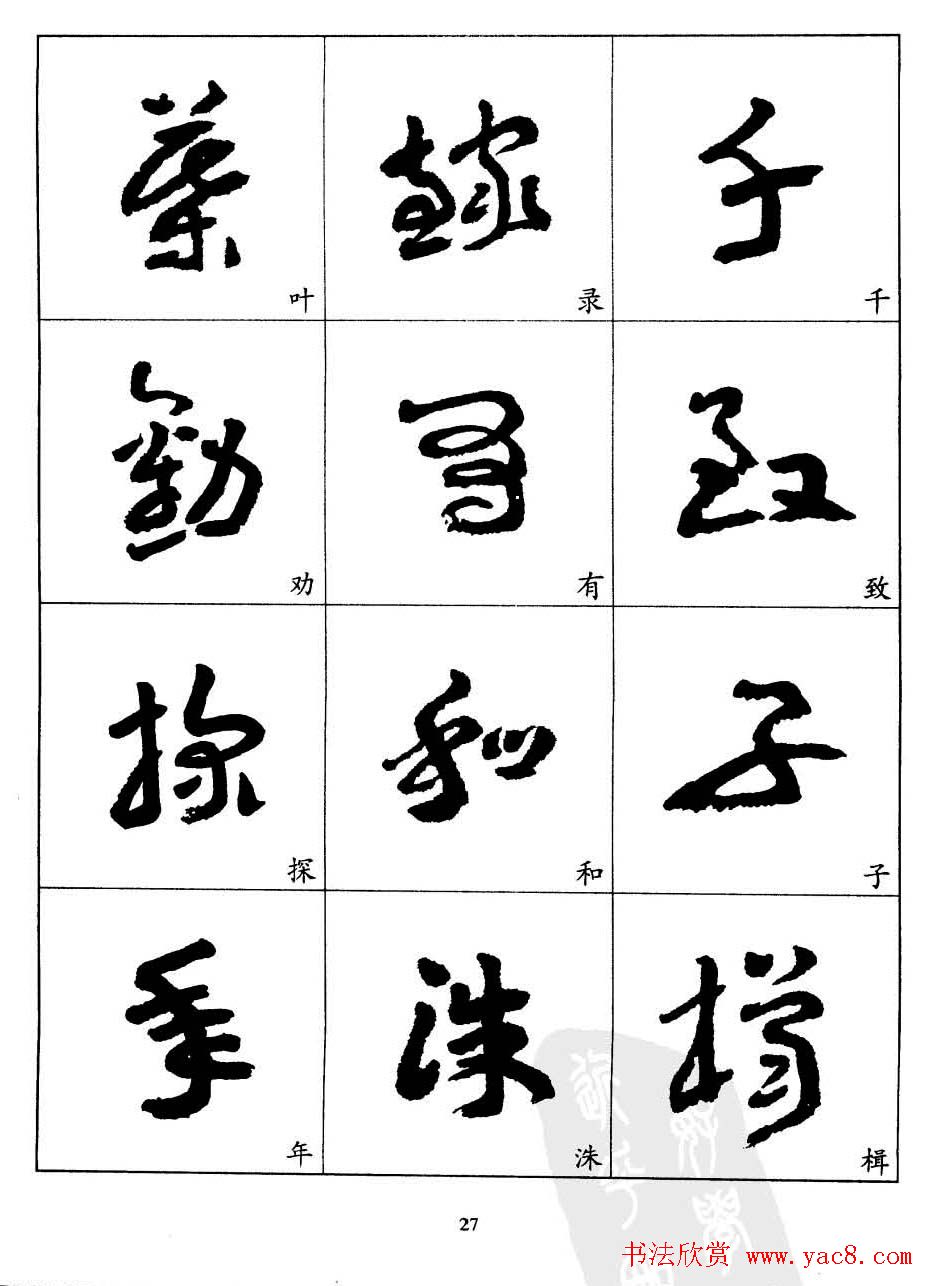 葉 錄 千
叶 录 千
勸 有 致
劝 有 致
探 和 子
探 和 子
年 洙 楫
年 洙 楫
27
书法欣赏 www.yac8.com